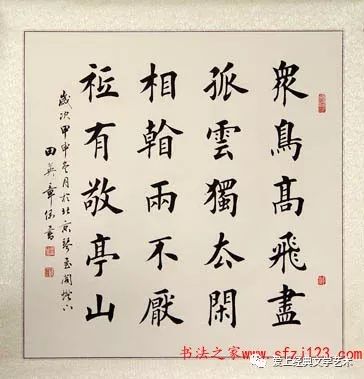 衆鳥高飛盡
孤雲獨厺閑
相看兩不厭
祗有敬亭山
歲次甲申冬月於北京
田英章
书法之家www.sfzj123.com
爱上经典文学艺术